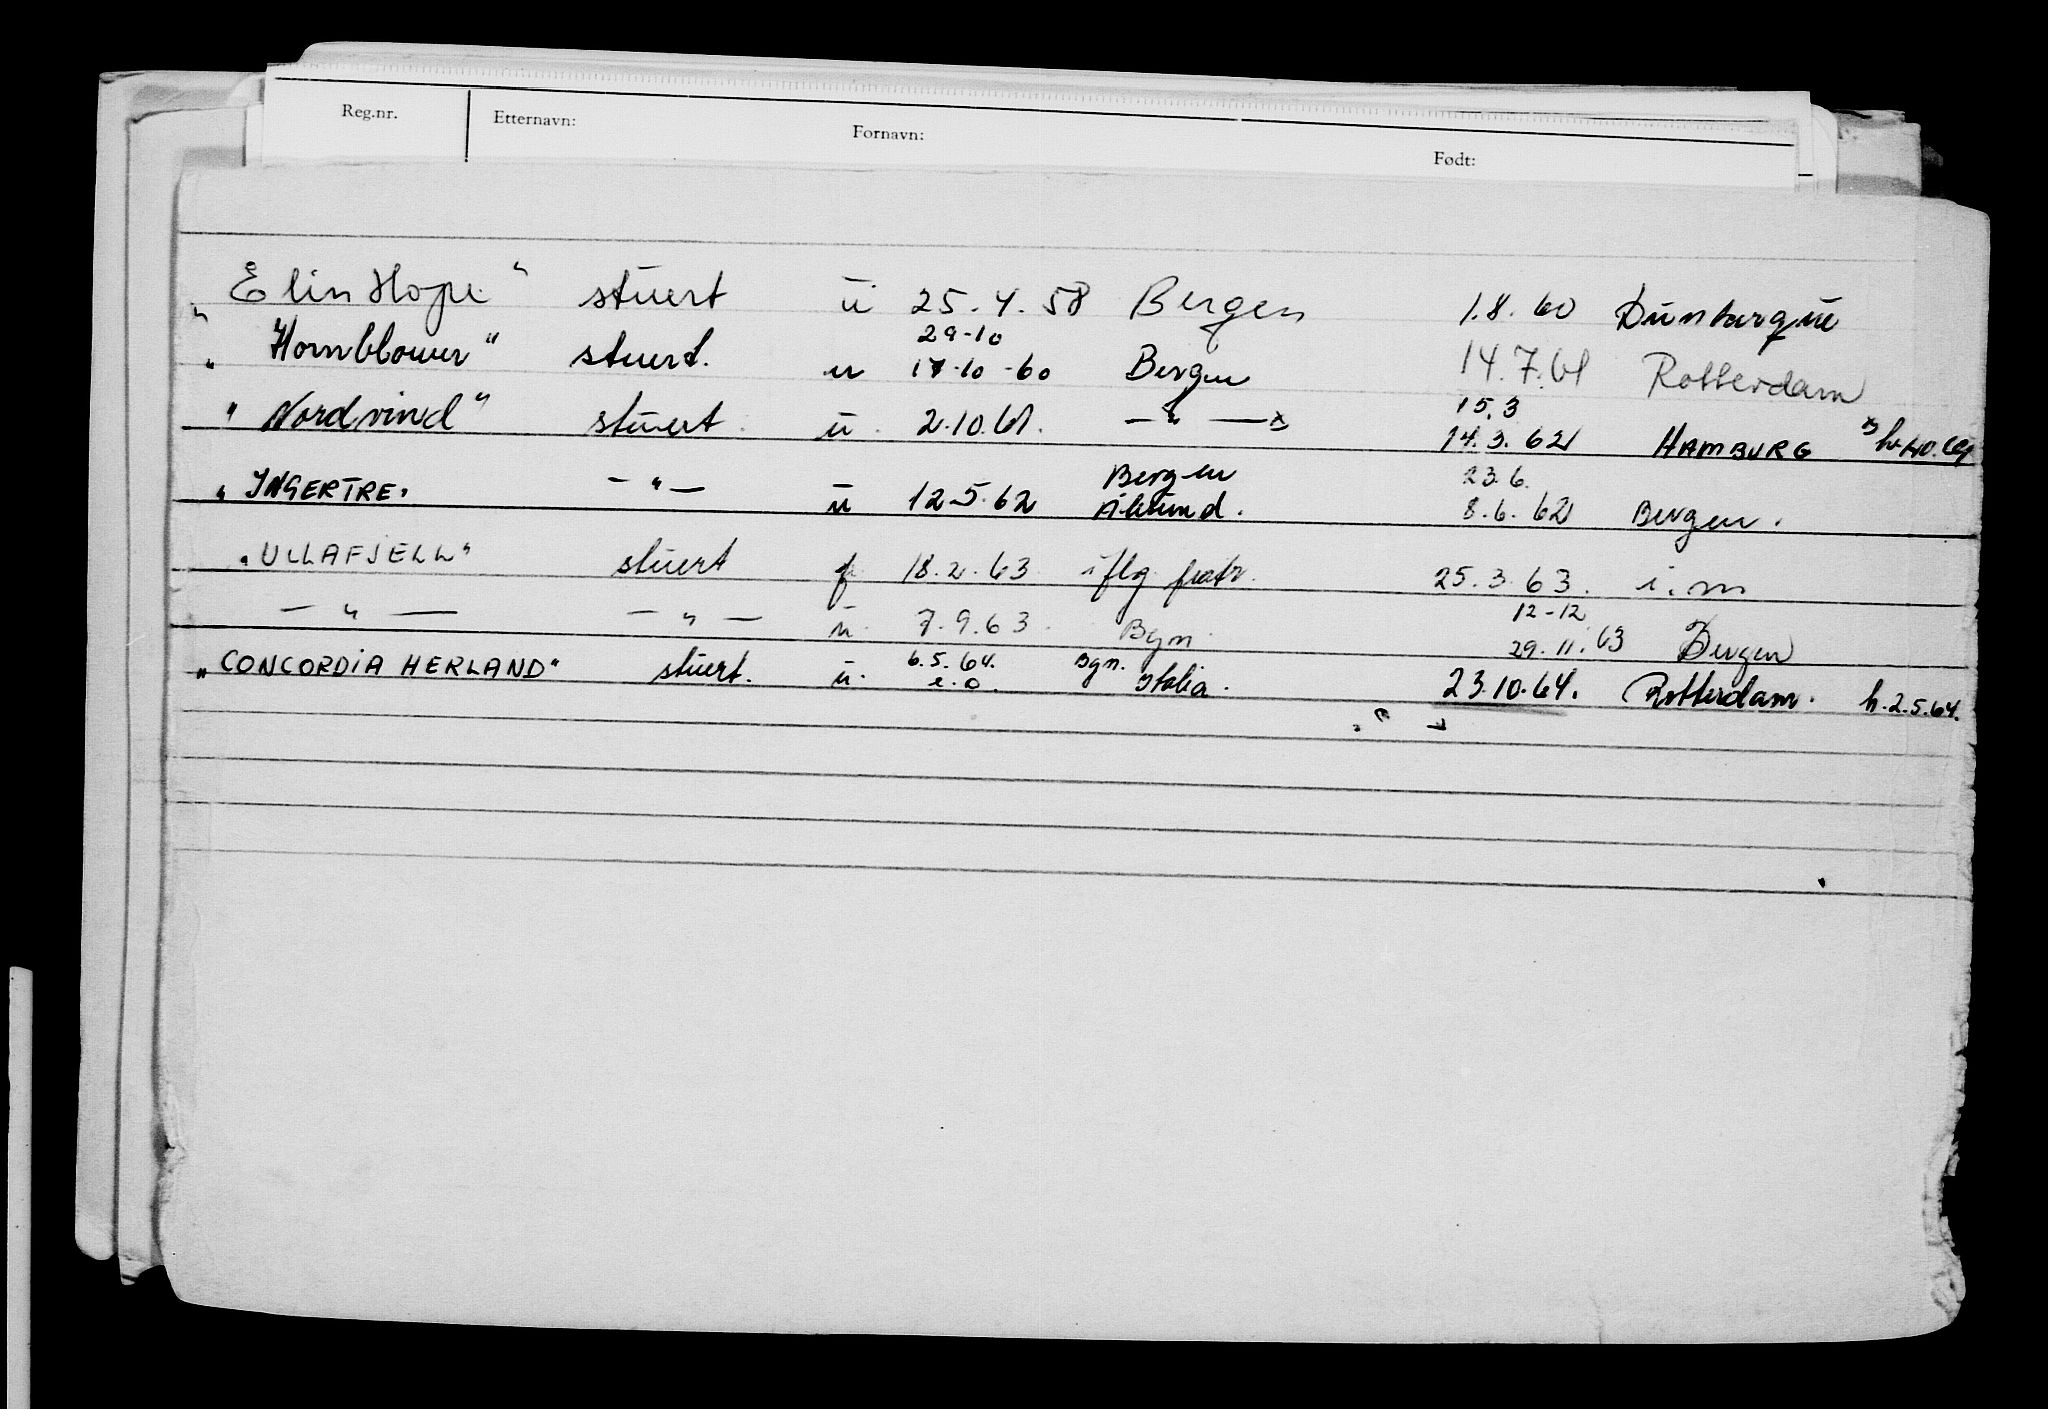 Reg.nr. Etternavn: Fornavn: Født:
"Elin Hope" stuert u 25.4.58 Bergen 1.8.60 Dunkerque
29-10
"Hornblower" stuert. u 17-10-60 Bergen 14.7.61 Rotterdam
15.3
"Nordvind" stuert. u. 2.10.61. — " — x) 14.3.62 HAMBURG x)
Bergen 23.6.
"INGERTRE. — " — u 12-5.62 Ålesund. 8.6.62 Bergen.
"ULLAFJELL" stuert f 18.2.63 iflg. 25.3.63. i.m
12-12
— " — — " — u. 7.9.63. Bgn. 29.11.63 Bergen
6.5.64. Bgn.
"CONCORDIA HERLAND" stuert. u. e.o. Italia. 23.10.64. Rotterdam. h.2.5.64.